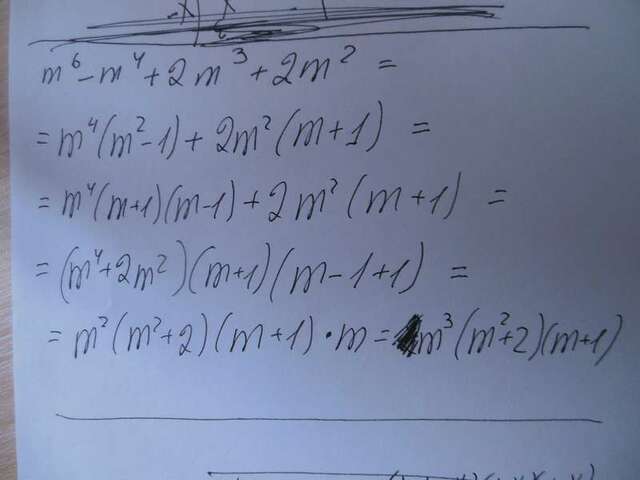 m⁶-m⁴+2m³+2m² =
= m⁴(m²-1)+2m²(m+1) =
= m⁴(m+1)(m-1)+2m²(m+1) =
= (m⁴+2m²)(m+1)(m-1+1) =
= m²(m²+2)(m+1)·m = m³(m²+2)(m+1)